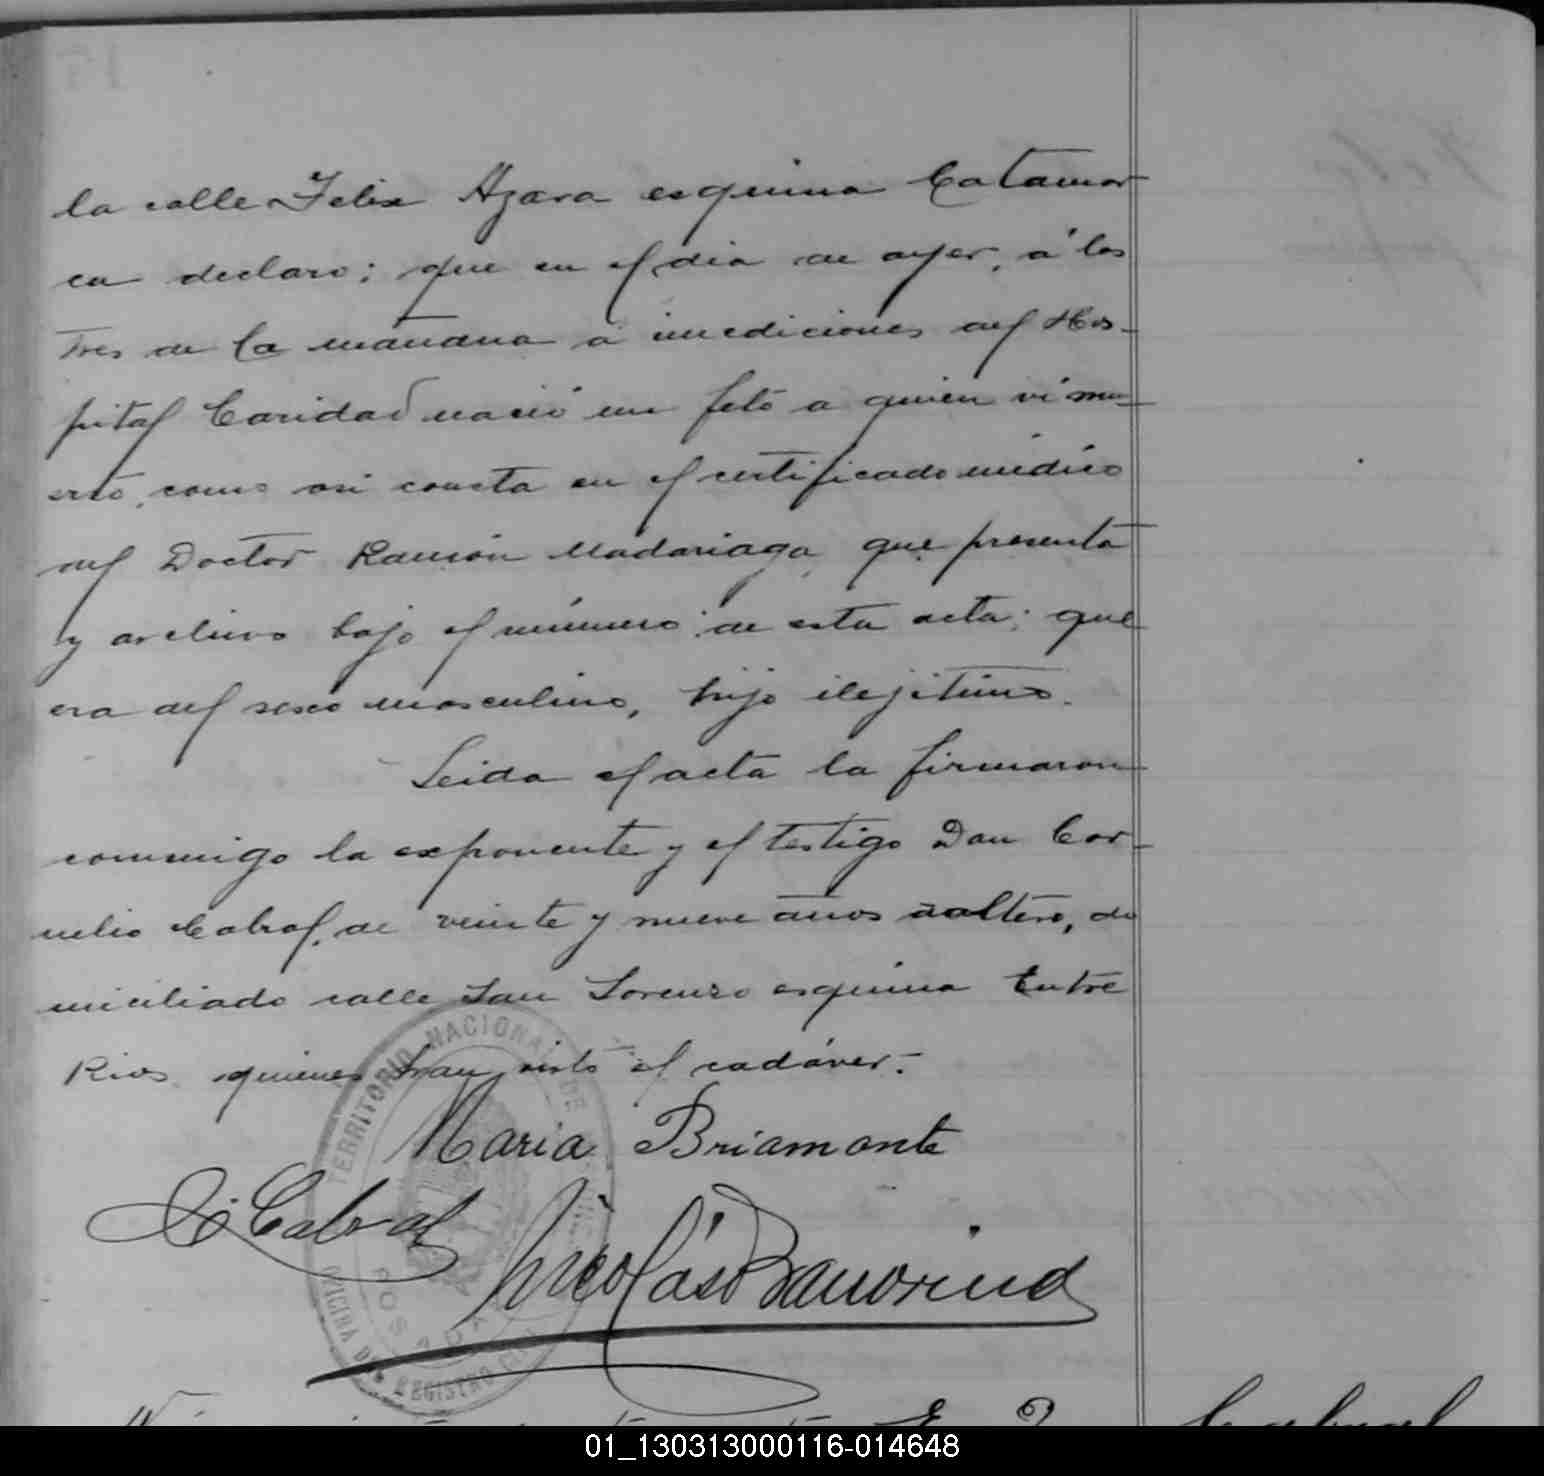 la calle Felix Azara esquina Catamar
ca declaro; que en el dia de ayer, á las
tres de la mañana á imediciones del Hos-
pital Caridad nació un feto a quien vi mu-
erto, como asi consta en el certificado médico
del Doctor Ramón Madariaga, que presenta
y archivo bajo el número de esta acta; que
era del sexo masculino, hijo ilejitimo.
Leida el acta la firmaron
conmigo la exponente y el testigo Don Cor-
nelio Cabral, de veinte y nueve años soltero, do
miciliado calle San Lorenzo esquina Entre
Rios quienes han visto el cadáver.-
TERRITORIO NACIONAL DE
Maria Briamonte
C. Cabral
Nicolás
POSADAS
OFICINA DEL REGISTRO CIVIL
Cabral
01_130313000116-014648